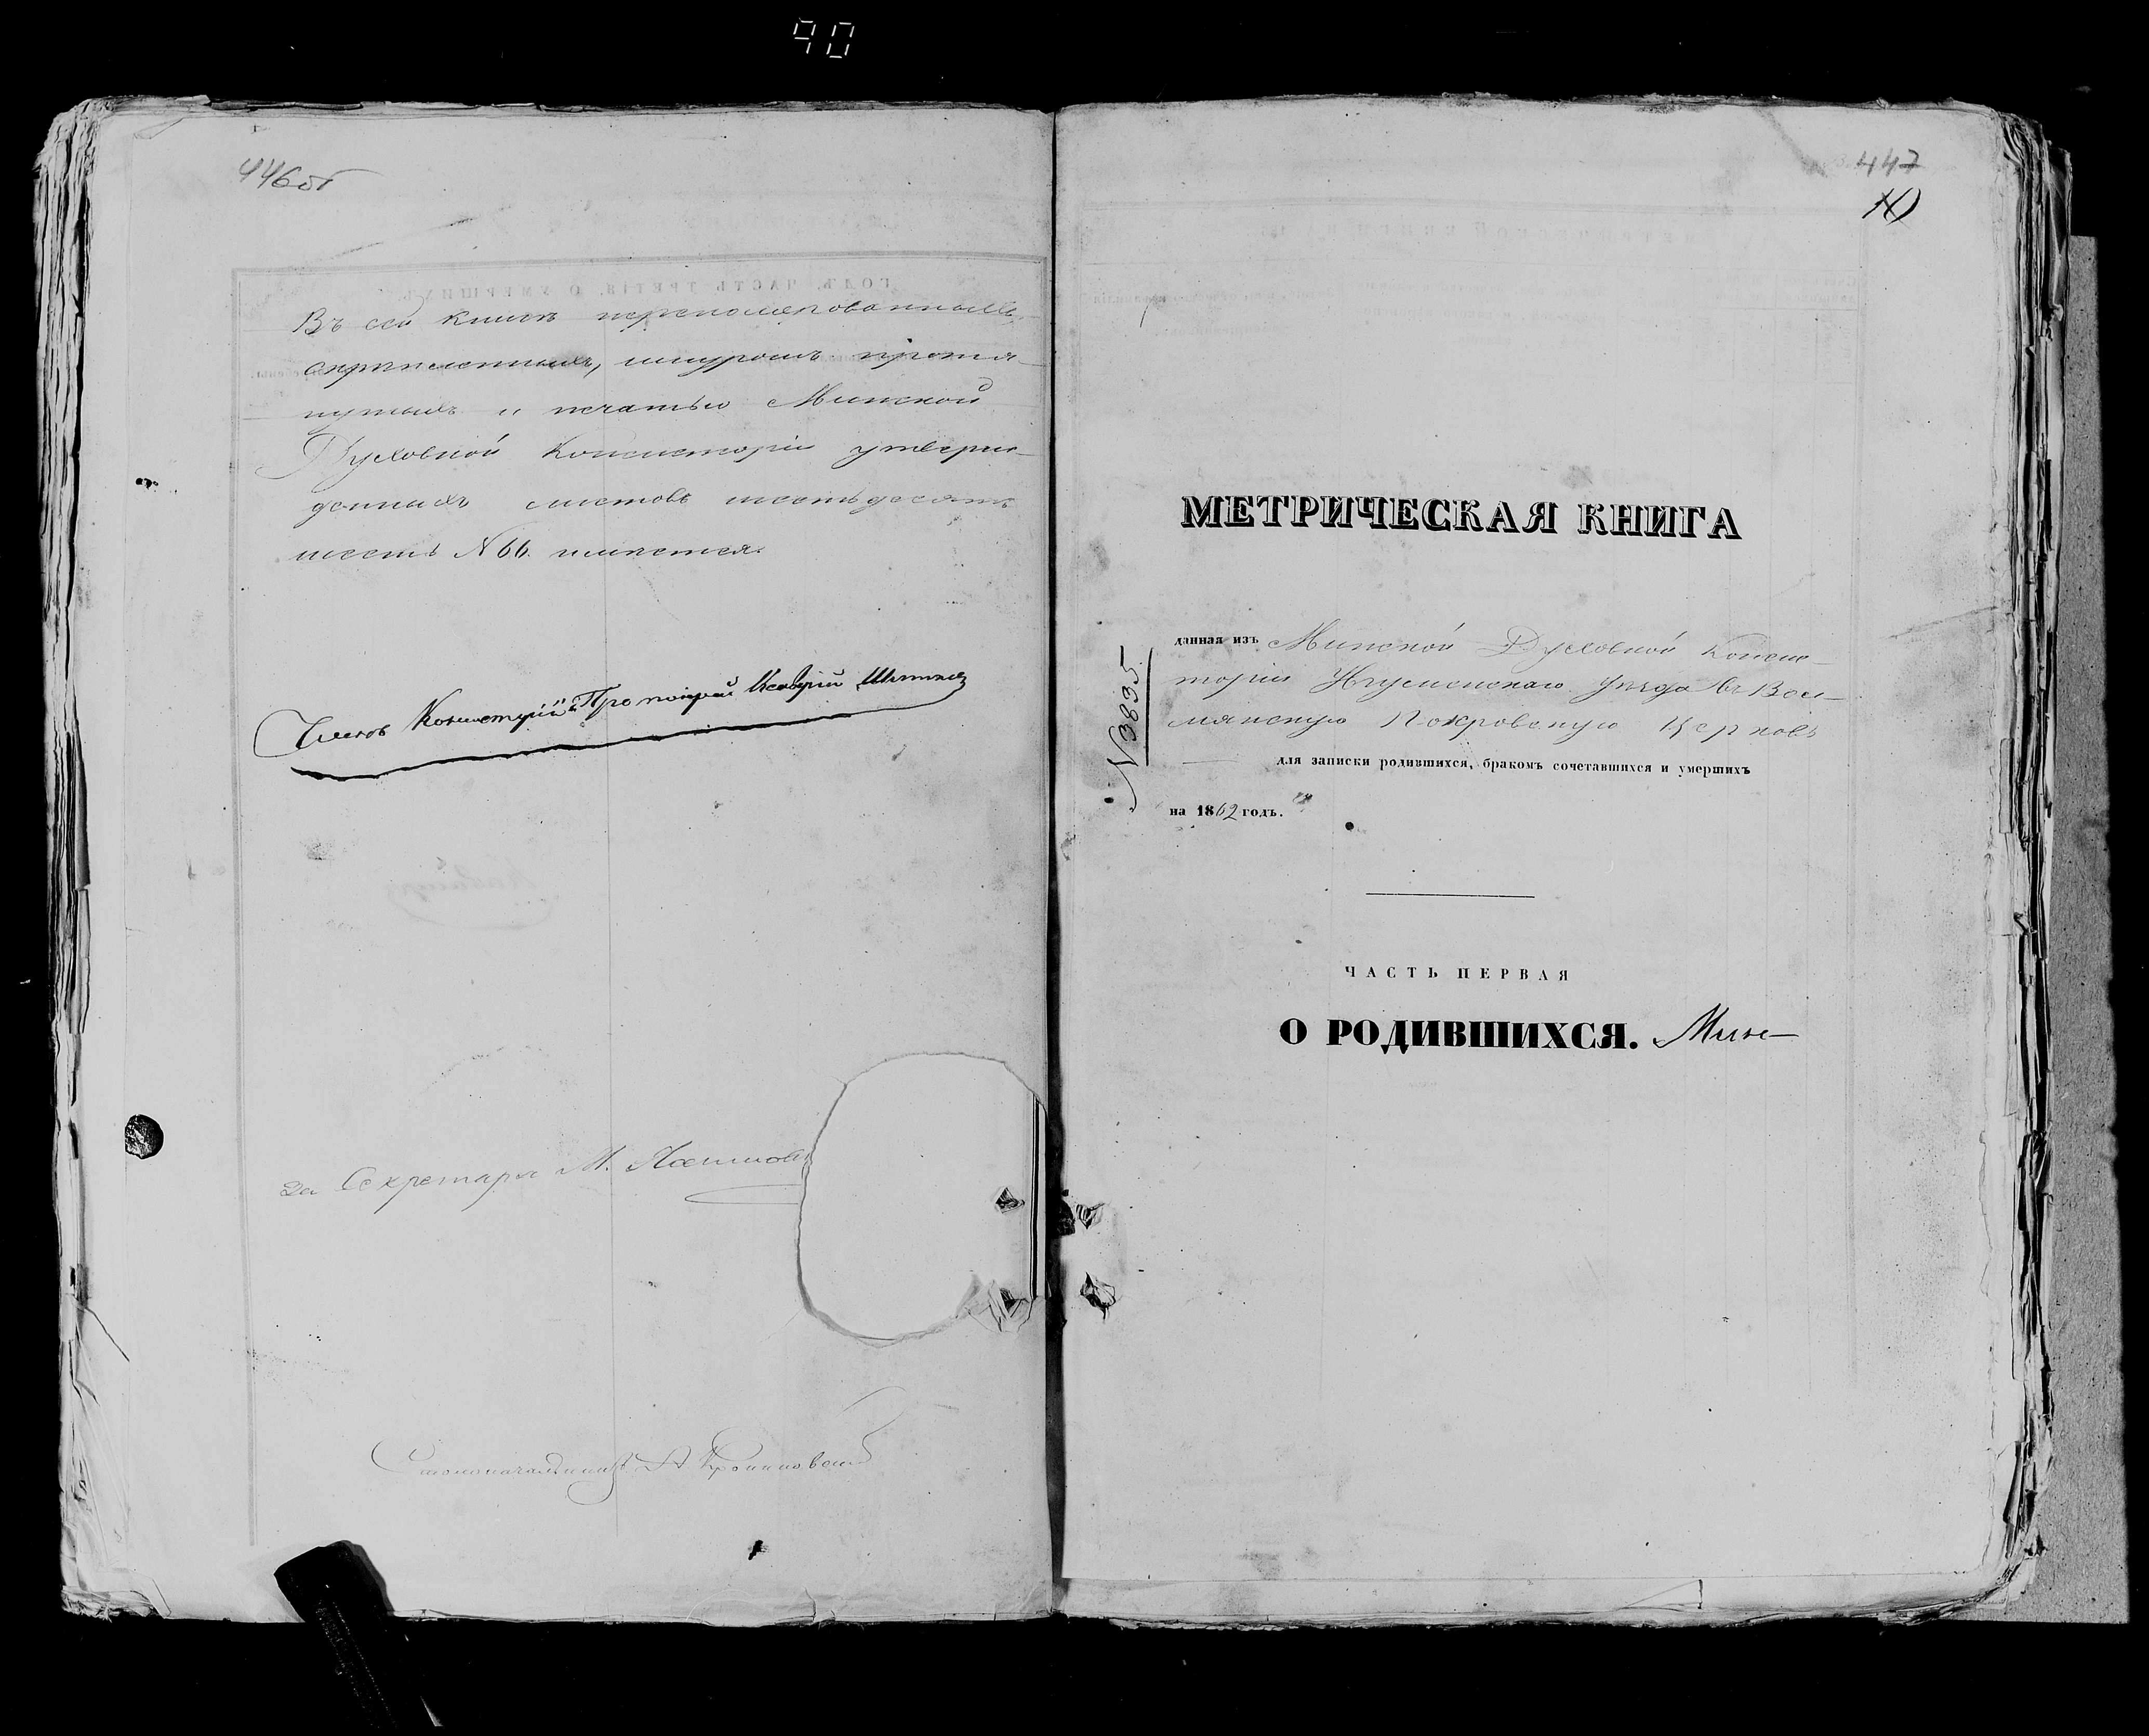 90
446об
Въ сей книгѣ перенумерованныхъ,
скрѣпленныхъ, шнуромъ протя-
нутыхъ и печатью Минской
Духовной Консисторіи утверж-
денныхъ листовъ шестьдесятъ
шесть N 66. имѣется.
Членъ Консисторіи Протоіерей
За Секретаря М.
Столоначальникъ А
447
10
МЕТРИЧЕСКАЯ КНИГА
N 3835.
данная изъ Минской Духовной Консис-
торіи Игуменскаго Уѣзда въ Вол-
мянскую Покровскую Церковь
для записки родившихся, бракомъ сочетавшихся и умершихъ
на 1862 годъ.
ЧАСТЬ ПЕРВАЯ
О РОДИВШИХСЯ.